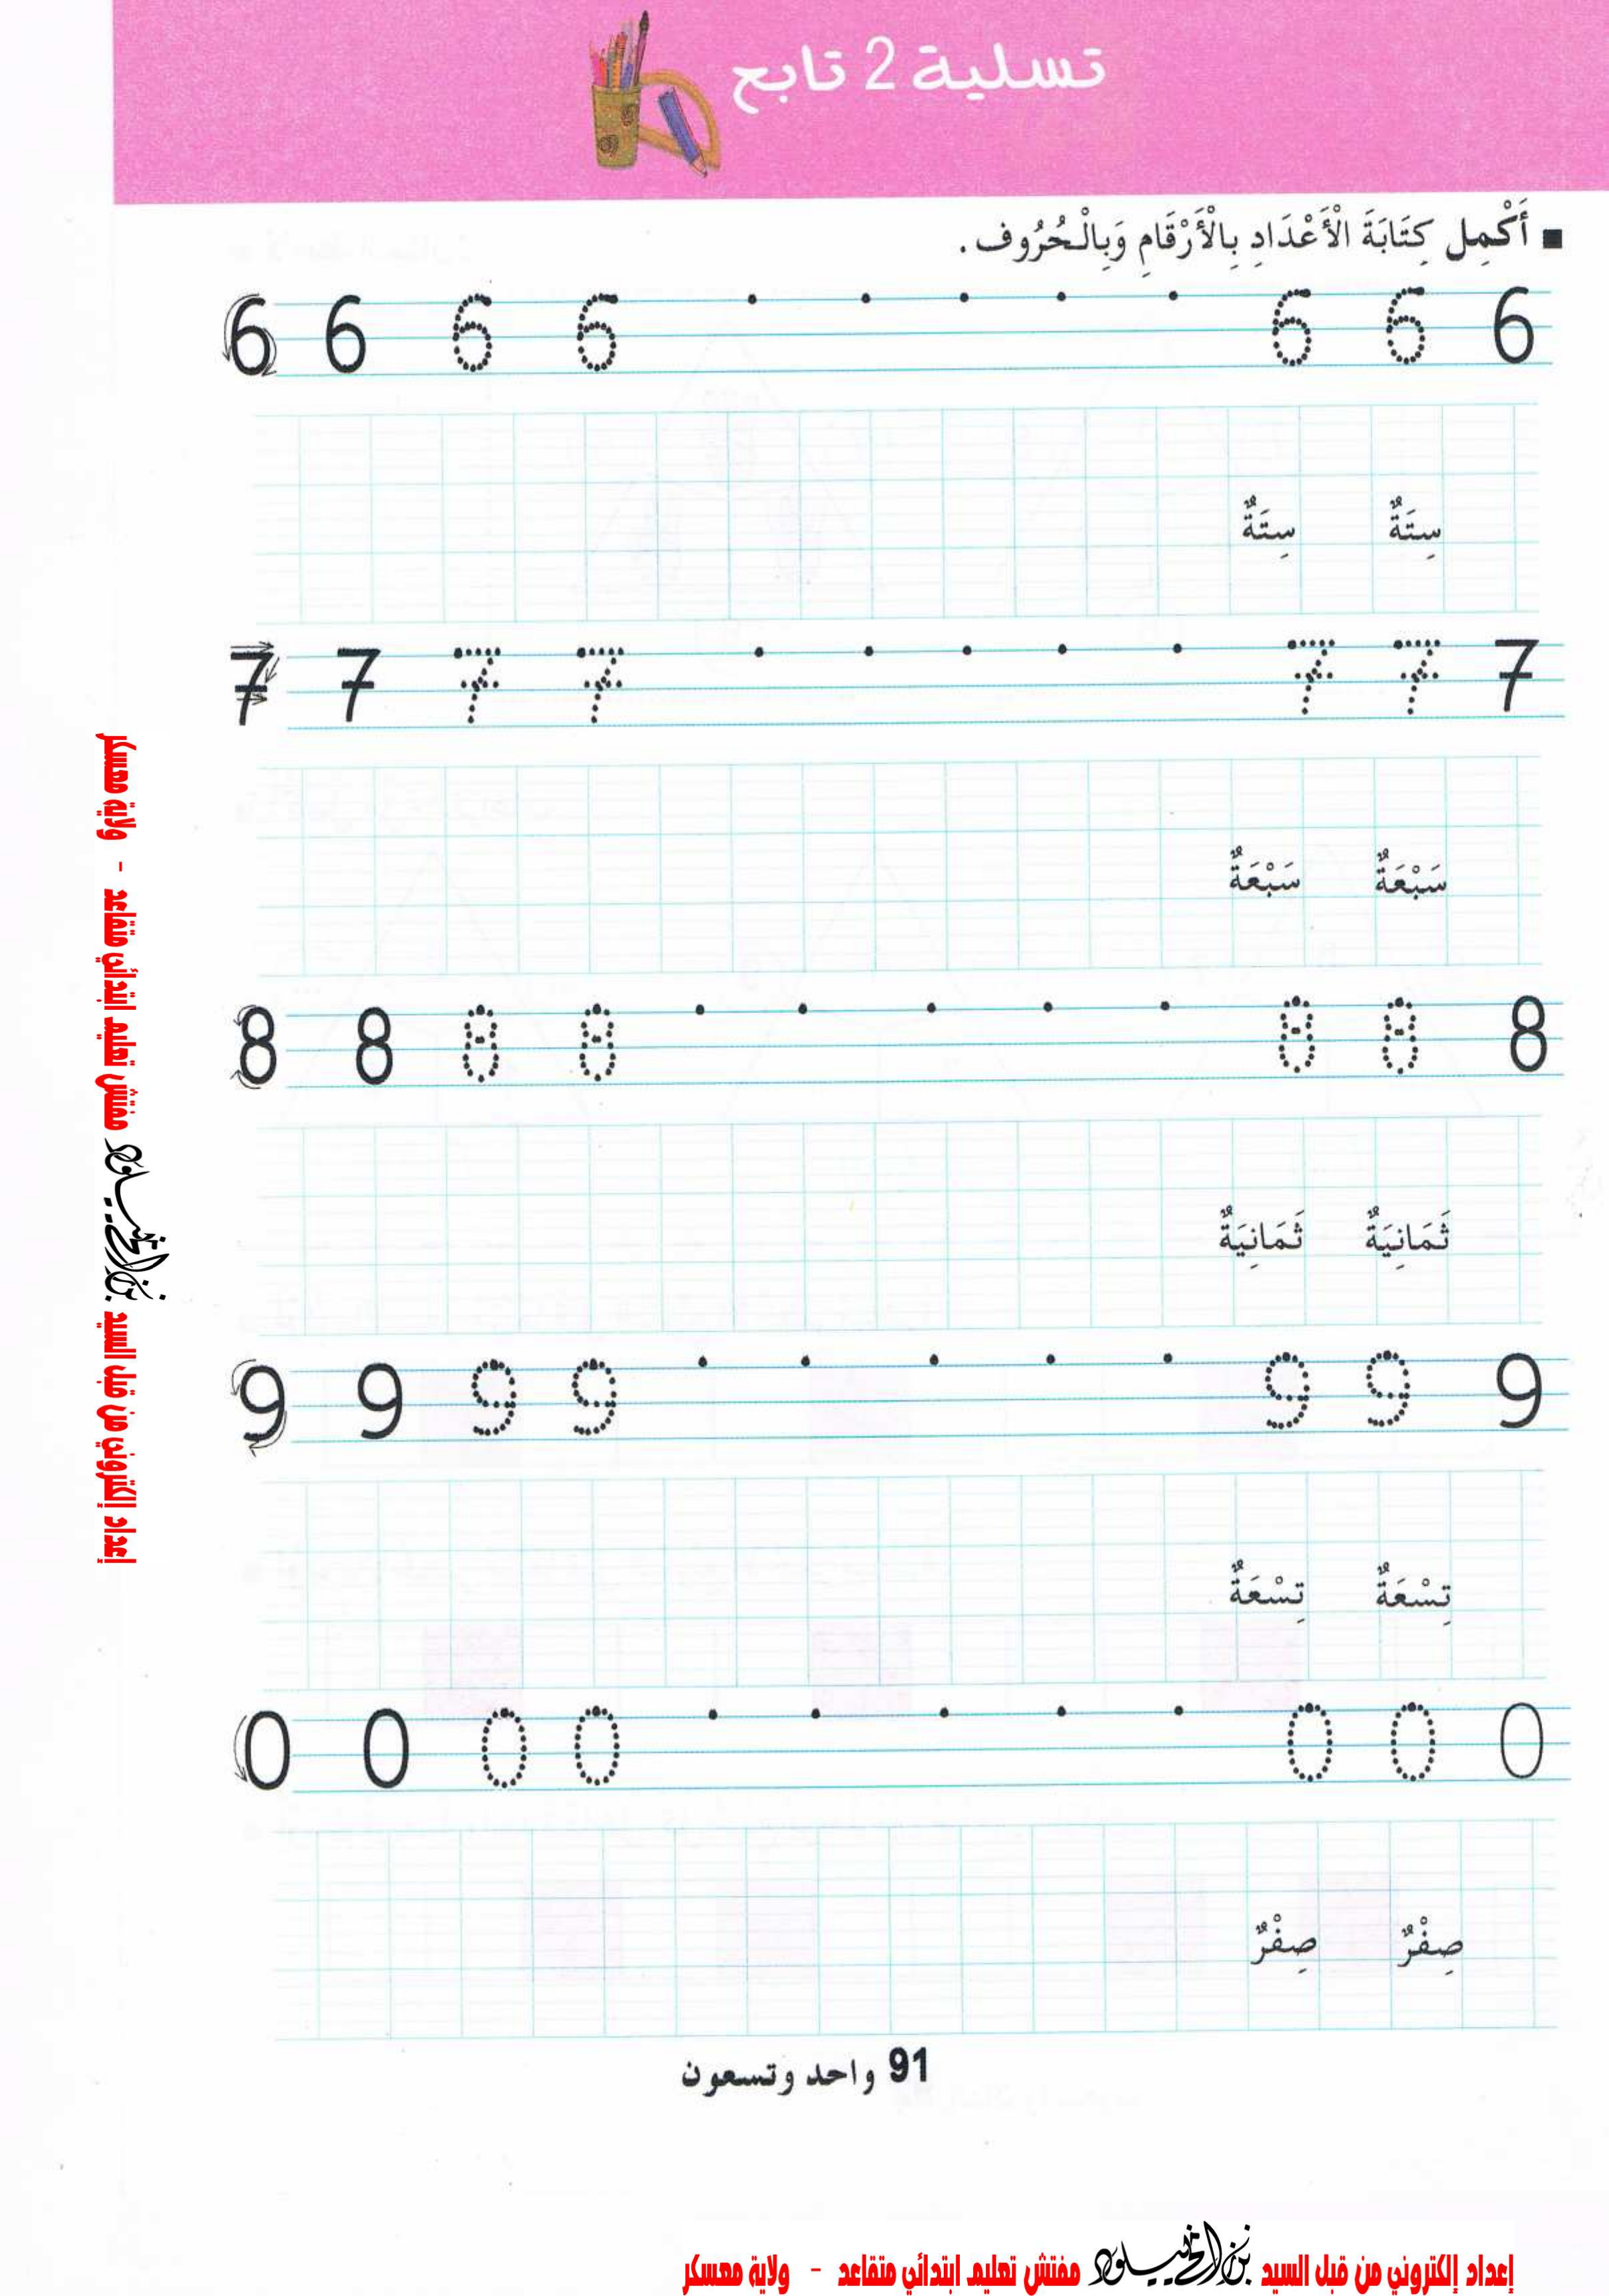 تسلية 2 تابع
■ أَكْمِل كِتَابَةَ الْأَعْدَادِ بِالْأَرْقَامِ وَبِالْحُرُوف .
6 6 6 6 . . . . . 6 6 6
سِتَةٌ سِتَةٌ
7 7 7 7 . . . . . 7 7 7
سَبْعَةٌ سَبْعَةٌ
8 8 8 8 . . . . . 8 8 8
ثَمَانِيَةٌ ثَمَانِيَةٌ
9 9 9 9 . . . . . 9 9 9
تِسْعَةٌ تِسْعَةٌ
0 0 0 0 . . . . . 0 0 0
صِفْرٌ صِفْرٌ
91 واحد وتسعون
إعداد إلكتروني من قبل السيد مفتش تعليم ابتدائي متقاعد - ولاية معسكر
إعداد إلكتروني من قبل السيد مفتش تعليم ابتدائي متقاعد - ولاية معسكر